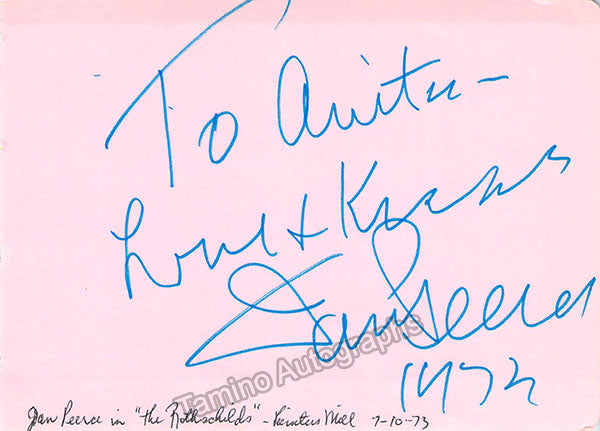 To Anita-
Love + Kisses
Jan Peerce
1973
Tamino Autographs
Jan Peerce in "The Rothschilds" - 7-10-73